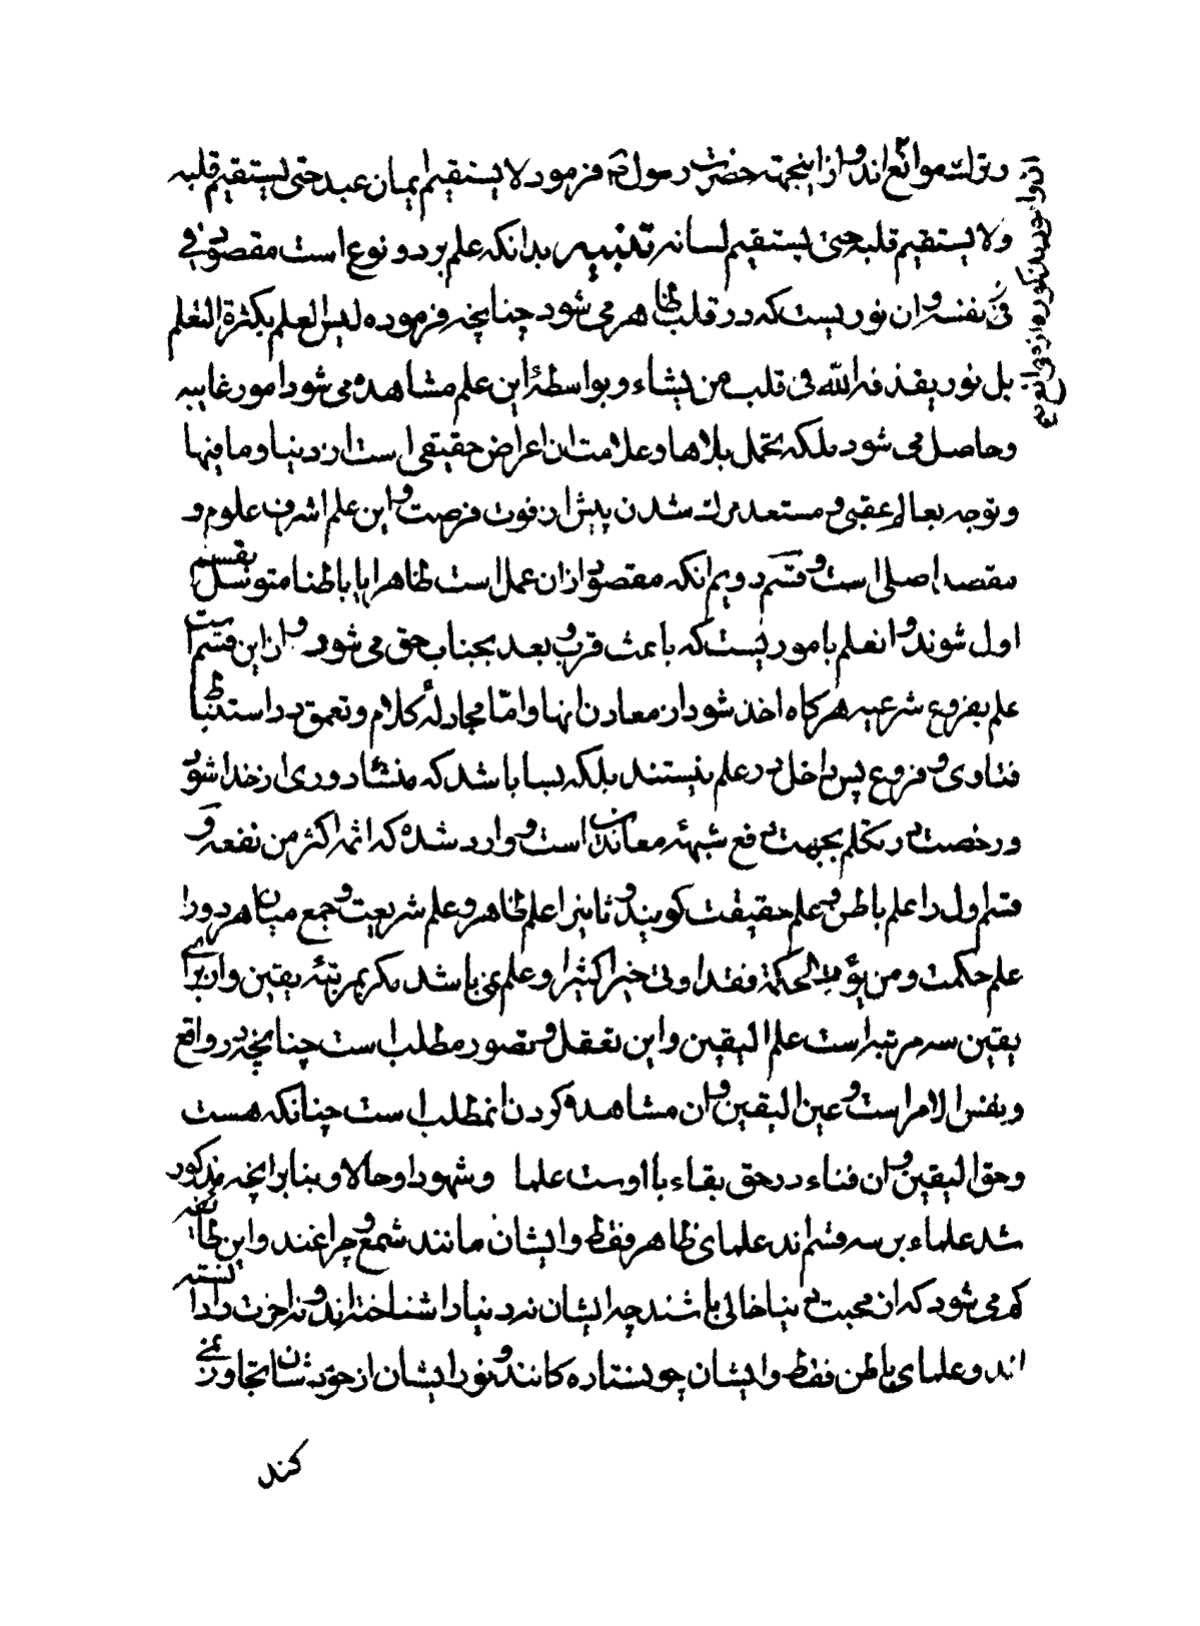 وترك موانع اند و از اینجهته حضرت رسول ص فرمود لا یستقیم ایمان عبد حتی یستقیم قلبه
ولا یستقیم قلبه حتی یستقیم لسانه تنبیه بدانکه علم بر دو نوع است مقصود فی
فی نفسه و ان نوریست که در قلب ظاهر می شود چنانچه فرموده لیس العلم بکثرة التعلم
بل نور یقذفه الله فی قلب من یشاء و بواسطهٔ این علم مشاهده می شود امور غایبه
وحاصل می شود ملکه تحمل بلاها و علامت ان اعراض حقیقی است از دنیا و ما فیها
وتوجه بعالم عقبی و مستعد مرك شدن پیش از فوت فرصت و این علم اشرف علوم و
مقصد اصلی است و قسم دویم انکه مقصود از ان عمل است ظاهرا یا باطنا متوسل بقسیم
اول شوند و ان علم بامور یست که باعث قرب و بعد بجناب حق می شود و از این قسم است
علم بفروع شرعیه هرکاه اخذ شود از معادن انها و امّا مجادلهٔ کلام و تعمق در استنباط
فتاوی و فروع پس داخل در علم نیستند بلکه بسا باشد که منشاء دوری از خدا شود
ورخصت در تکلم بجهت دفع شبههٔ معاندان است و وارد شده که اثمه اکثر من نفعه و
قسم اول را علم باطن و علم حقیقت کویند و ثانیرا علم ظاهر و علم شریعت و جمع میان هر دو را
علم حکمت ومن یؤت الحکمة فقد اوتی خیرا کثیرا و علم نمی باشد مکر بمرتبهٔ یقین و از برای
یقین سه مرتبه است علم الیقین و این تعقل و تصور مطلب است چنانچه در واقع
ونفس الامر است و عین الیقین و ان مشاهده کردن ان مطلب است چنانکه هست
وحق الیقین و ان فناء در حق بقاء با اوست علما وشهودا و حالا و بنابر انچه مذکور
شد علماء بر سه قسم اند علمای ظاهر فقط و ایشان مانند شمع و چراغند و این طایفه
کم می شود که از محبت دنیا خالی باشند چه ایشان نه دنیا را شناخته اند و نه اخرت را دانسته
اند و علمای باطن فقط و ایشان چو ستاره کانند و نور ایشان از خودشان تجاوز نمی
کند